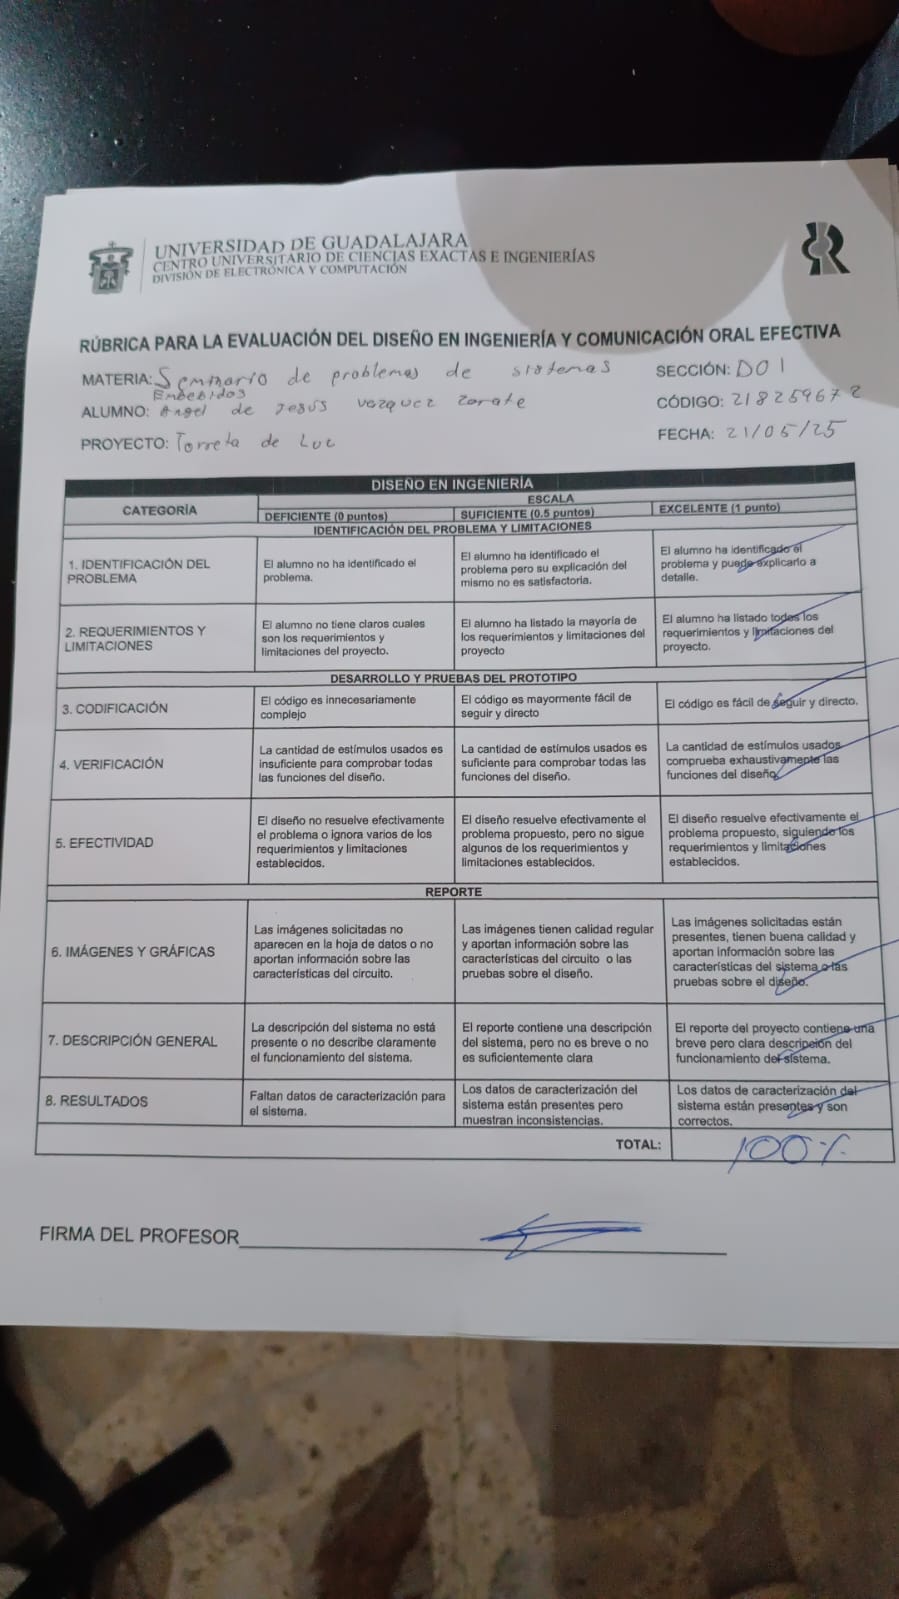 UNIVERSIDAD DE GUADALAJARA
CENTRO UNIVERSITARIO DE CIENCIAS EXACTAS E INGENIERÍAS
DIVISIÓN DE ELECTRÓNICA Y COMPUTACIÓN
RÚBRICA PARA LA EVALUACIÓN DEL DISEÑO EN INGENIERÍA Y COMUNICACIÓN ORAL EFECTIVA
MATERIA: Seminario de problemas de sistemas
Embebidos
SECCIÓN: D01
ALUMNO: Angel de Jesús Vazquez Zarate
CÓDIGO: 218259672
PROYECTO: Torreta de Luz
FECHA: 21/05/25
DISEÑO EN INGENIERÍA
CATEGORÍA
ESCALA
DEFICIENTE (0 puntos)
SUFICIENTE (0.5 puntos)
EXCELENTE (1 punto)
IDENTIFICACIÓN DEL PROBLEMA Y LIMITACIONES
1. IDENTIFICACIÓN DEL
PROBLEMA
El alumno no ha identificado el
problema.
El alumno ha identificado el
problema pero su explicación del
mismo no es satisfactoria.
El alumno ha identificado el
problema y puede explicarlo a
detalle.
2. REQUERIMIENTOS Y
LIMITACIONES
El alumno no tiene claros cuales
son los requerimientos y
limitaciones del proyecto.
El alumno ha listado la mayoría de
los requerimientos y limitaciones del
proyecto
El alumno ha listado todos los
requerimientos y limitaciones del
proyecto.
DESARROLLO Y PRUEBAS DEL PROTOTIPO
3. CODIFICACIÓN
El código es innecesariamente
complejo
El código es mayormente fácil de
seguir y directo
El código es fácil de seguir y directo.
4. VERIFICACIÓN
La cantidad de estímulos usados es
insuficiente para comprobar todas
las funciones del diseño.
La cantidad de estímulos usados es
suficiente para comprobar todas las
funciones del diseño.
La cantidad de estímulos usados
comprueba exhaustivamente las
funciones del diseño.
5. EFECTIVIDAD
El diseño no resuelve efectivamente
el problema o ignora varios de los
requerimientos y limitaciones
establecidos.
El diseño resuelve efectivamente el
problema propuesto, pero no sigue
algunos de los requerimientos y
limitaciones establecidos.
El diseño resuelve efectivamente el
problema propuesto, siguiendo los
requerimientos y limitaciones
establecidos.
REPORTE
6. IMÁGENES Y GRÁFICAS
Las imágenes solicitadas no
aparecen en la hoja de datos o no
aportan información sobre las
características del circuito.
Las imágenes tienen calidad regular
y aportan información sobre las
características del circuito o las
pruebas sobre el diseño.
Las imágenes solicitadas están
presentes, tienen buena calidad y
aportan información sobre las
características del sistema o las
pruebas sobre el diseño.
7. DESCRIPCIÓN GENERAL
La descripción del sistema no está
presente o no describe claramente
el funcionamiento del sistema.
El reporte contiene una descripción
del sistema, pero no es breve o no
es suficientemente clara
El reporte del proyecto contiene una
breve pero clara descripción del
funcionamiento del sistema.
8. RESULTADOS
Faltan datos de caracterización para
el sistema.
Los datos de caracterización del
sistema están presentes pero
muestran inconsistencias.
Los datos de caracterización del
sistema están presentes y son
correctos.
TOTAL:
100%
FIRMA DEL PROFESOR